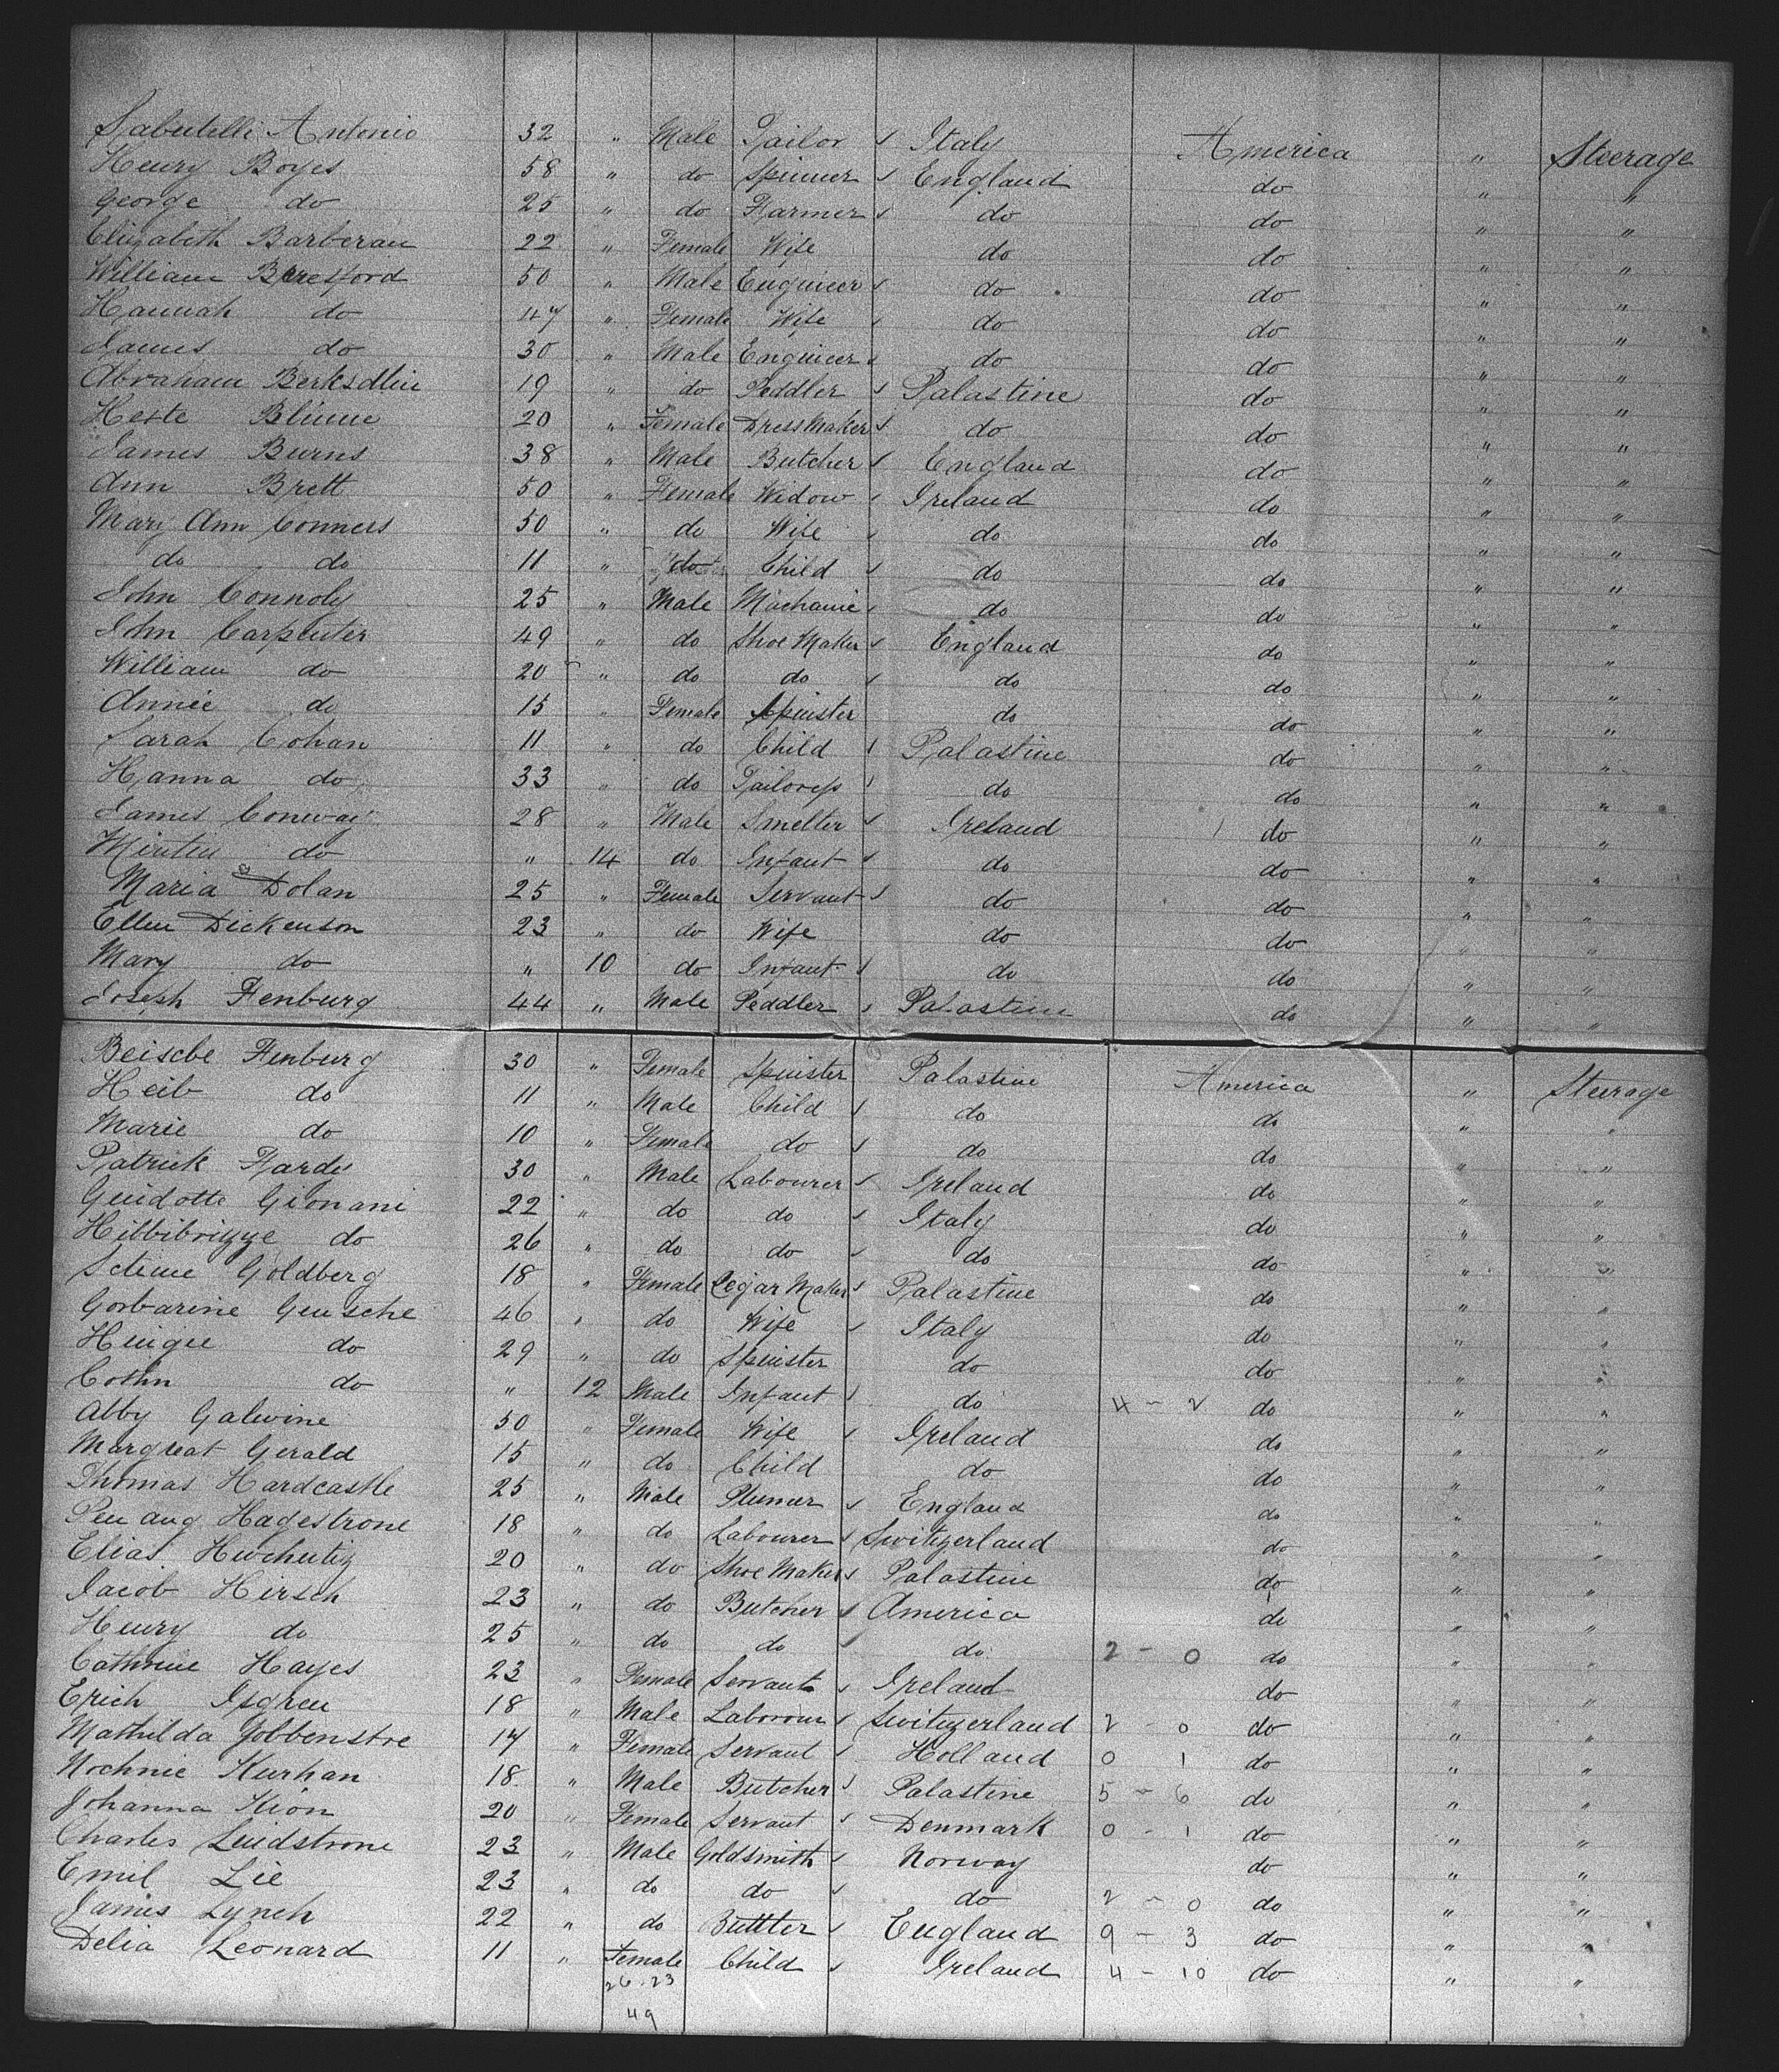 Sabutelli Antonio 32 " Male Tailor ✓ Italy America " Steerage
Henry Boyes 58 " do Spinner ✓ England do " "
George do 25 " do Farmer ✓ do do " "
Elizabeth Barberan 22 " Female Wife do do " "
William Beresford 50 " Male Engineer ✓ do do " "
Hannah do 47 " Female Wife ✓ do do " "
James do 30 " Male Engineer ✓ do do " "
Abraham Berksdlin 19 " do Peddler ✓ Palastine do " "
Heste Blume 20 " Female DressMaker ✓ do do " "
James Burns 38 " Male Butcher ✓ England do " "
Ann Brett 50 " Female Widow ✓ Ireland do " "
Mary Ann Conners 50 " do Wife ✓ do do " "
do do 11 " do Child ✓ do do " "
John Connoly 25 " Male Machanic ✓ do do " "
John Carpenter 49 " do Shoe Maker ✓ England do " "
William do 20 " do do ✓ do do " "
Annie do 15 " Female Spinster do do " "
Sarah Cohan 11 " do Child ✓ Palastine do " "
Hanna do 33 " do Tailoress ✓ do do " "
James Conway 28 " Male Smelter ✓ Ireland do " "
do " 14 do Infant ✓ do do " "
Maria Dolan 25 " Female Servant ✓ do do " "
Ellen Dickenson 23 " do Wife do do " "
Mary do " 10 do Infant ✓ do do " "
Joseph Fenburg 44 " Male Peddler ✓ Palastine do " "
Beische Fenburg 30 " Female Spinster Palastine America " Steerage
Heib do 11 " Male Child ✓ do do " "
Marie do 10 " Female do ✓ do do " "
Patrick Fardy 30 " Male Labourer ✓ Ireland do " "
Guidotte Gionani 22 " do do ✓ Italy do " "
Hibbibrizze do 26 " do do ✓ do do " "
Goldberg 18 " Female Cegar Maker ✓ Palastine do " "
Gorbarine Gensche 46 " do Wife ✓ Italy do " "
do 29 " do Spinster do do " "
Cothn do " 12 Male Infant ✓ do 4 - 2 do " "
Abby Galwine 50 " Female Wife ✓ Ireland do " "
Margreat Gerald 15 " do Child do do " "
Thomas Hardcastle 25 " Male Plumer ✓ England do " "
Hagestrone 18 " do Labourer ✓ Switzerland do " "
Elias 20 " do Shoe Maker ✓ Palastine do " "
Jacob Hirsch 23 " do Butcher ✓ America do " "
Henry do 25 " do do ✓ do 2 - 0 do " "
Cathrine Hayes 23 " Female Servant ✓ Ireland do " "
Erich Isgren 18 " Male Laborour ✓ Switzerland 2 - 0 do " "
Mathilda Jobbenstre 17 " Female Servant ✓ Holland 0 1 do " "
Nochnie Kurhan 18 " Male Butcher ✓ Palastine 5 - 6 do " "
Johanna Kion 20 " Female Servant ✓ Denmark 0 - 1 do " "
Charles Lindstrone 23 " Male Goldsmith ✓ Norway do " "
Emil Lie 23 " do do ✓ do 2 - 0 do " "
James Lynch 22 " do Buttler ✓ England 9 - 3 do " "
Delia Leonard 11 " Female Child ✓ Ireland 4 - 10 do " "
26.23
49